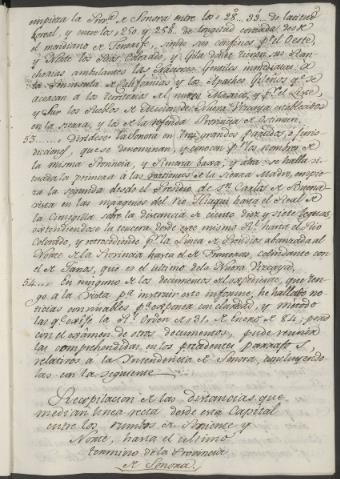 empieza la Prov.ª de Sonora entre los 28.º 33.' de latitud
boreal, y entre los 250 y 258. de longitud contada desde
el meridiano de Tenerife, según sus confines p.r el Oeste,
y Norte los Rios Colorado, y Gila donde tienen sus Ran
cherias ambulantes las Naciones Gentiles
la Peninsula de Californias y los Apaches Gileños q.e se
acercan a los territorios del nuevo Mexico, y p.r el Leste,
y Sur los Pueblos de Nueva Vizcaya
en la sierra, y los de la referida Provincia de Ostimuri.
53. Dividese la Sonora en tres grandes partidos, o juris
dicciones, que se denominan, y conocen p.r los nombres de
la misma Provincia, y Pimeria baxa, y alta: se halla si
tuada la primera a las de la Sierra Madre, empie
za la segunda desde el Presidio de S.n Carlos de Buena
vista en las margenes del Rio Hiaqui hasta el Real de
la Cieneguilla sobre la distancia de ciento diez y siete leguas,
extendiendose la tercera desde este mismo R.l hasta el Rio
Colorado, y retrocediendo p.r la Linea de Presidios abanzada al
Norte de la Provincia hasta el de Fronteras, colindante con
el de Janos, que es el ultimo de la Nueva Vizcaya.
54. En ninguno de los documentos del expediente, que ten
go a la vista p.a instruir este informe, he hallado no
ticias con claridad, y metodo
las q.e exige la R.l Orden de 31. de Enero de 84; pero
con el examen de otros documentos, pude reunir
las comprehendidas en los precedentes parrafos,
relativos a la Intendencia de Sonora, concluyendo
las con la siguiente
Recopilacion de las distancias que
median linea recta desde esta Capital
entre los rumbos de Poniente y
Norte, hasta el ultimo
termino de la Provincia
de Sonora